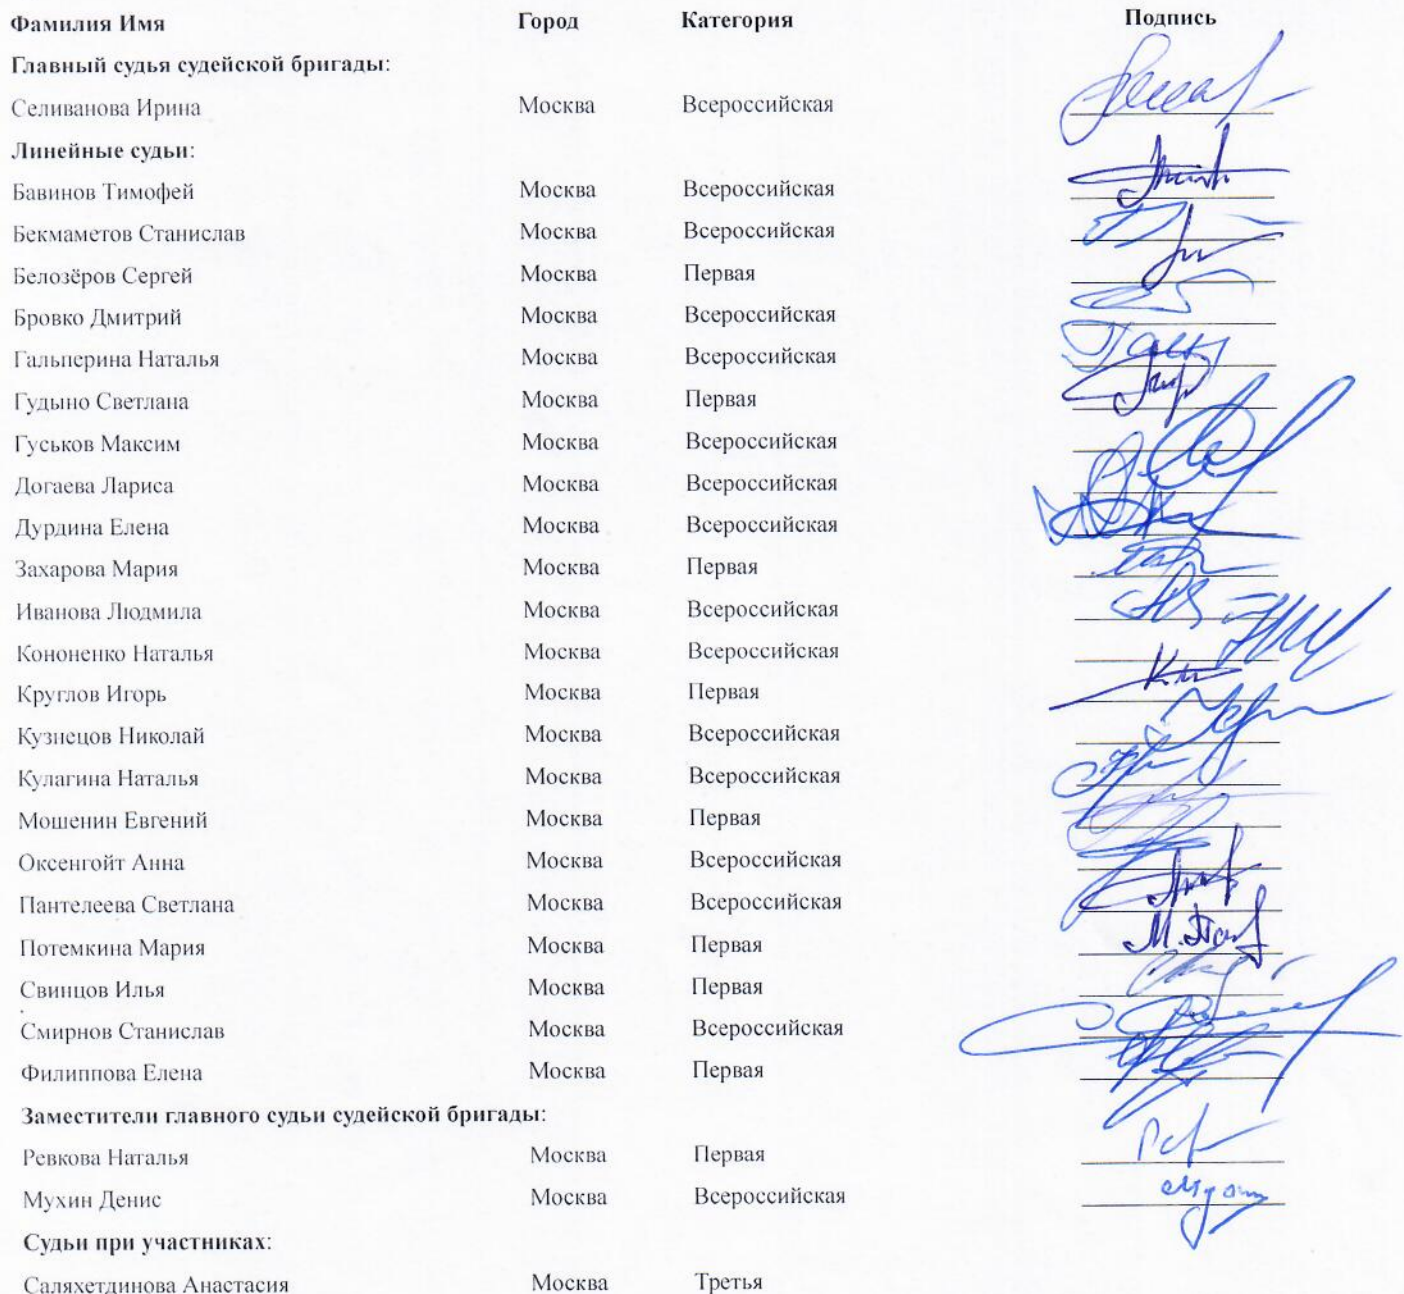 Фамилия Имя Город Категория Подпись
Главный судья судейской бригады:
Селиванова Ирина Москва Всероссийская
Линейные судьи:
Бавинов Тимофей Москва Всероссийская
Бекмаметов Станислав Москва Всероссийская
Белозёров Сергей Москва Первая
Бровко Дмитрий Москва Всероссийская
Гальперина Наталья Москва Всероссийская
Гудыно Светлана Москва Первая
Гуськов Максим Москва Всероссийская
Догаева Лариса Москва Всероссийская
Дурдина Елена Москва Всероссийская
Захарова Мария Москва Первая
Иванова Людмила Москва Всероссийская
Кононенко Наталья Москва Всероссийская
Круглов Игорь Москва Первая
Кузнецов Николай Москва Всероссийская
Кулагина Наталья Москва Всероссийская
Мошенин Евгений Москва Первая
Оксенгойт Анна Москва Всероссийская
Пантелеева Светлана Москва Всероссийская
Потемкина Мария Москва Первая
Свинцов Илья Москва Первая
Смирнов Станислав Москва Всероссийская
Филиппова Елена Москва Первая
Заместители главного судьи судейской бригады:
Ревкова Наталья Москва Первая
Мухин Денис Москва Всероссийская
Судьи при участниках:
Саляхетдинова Анастасия Москва Третья